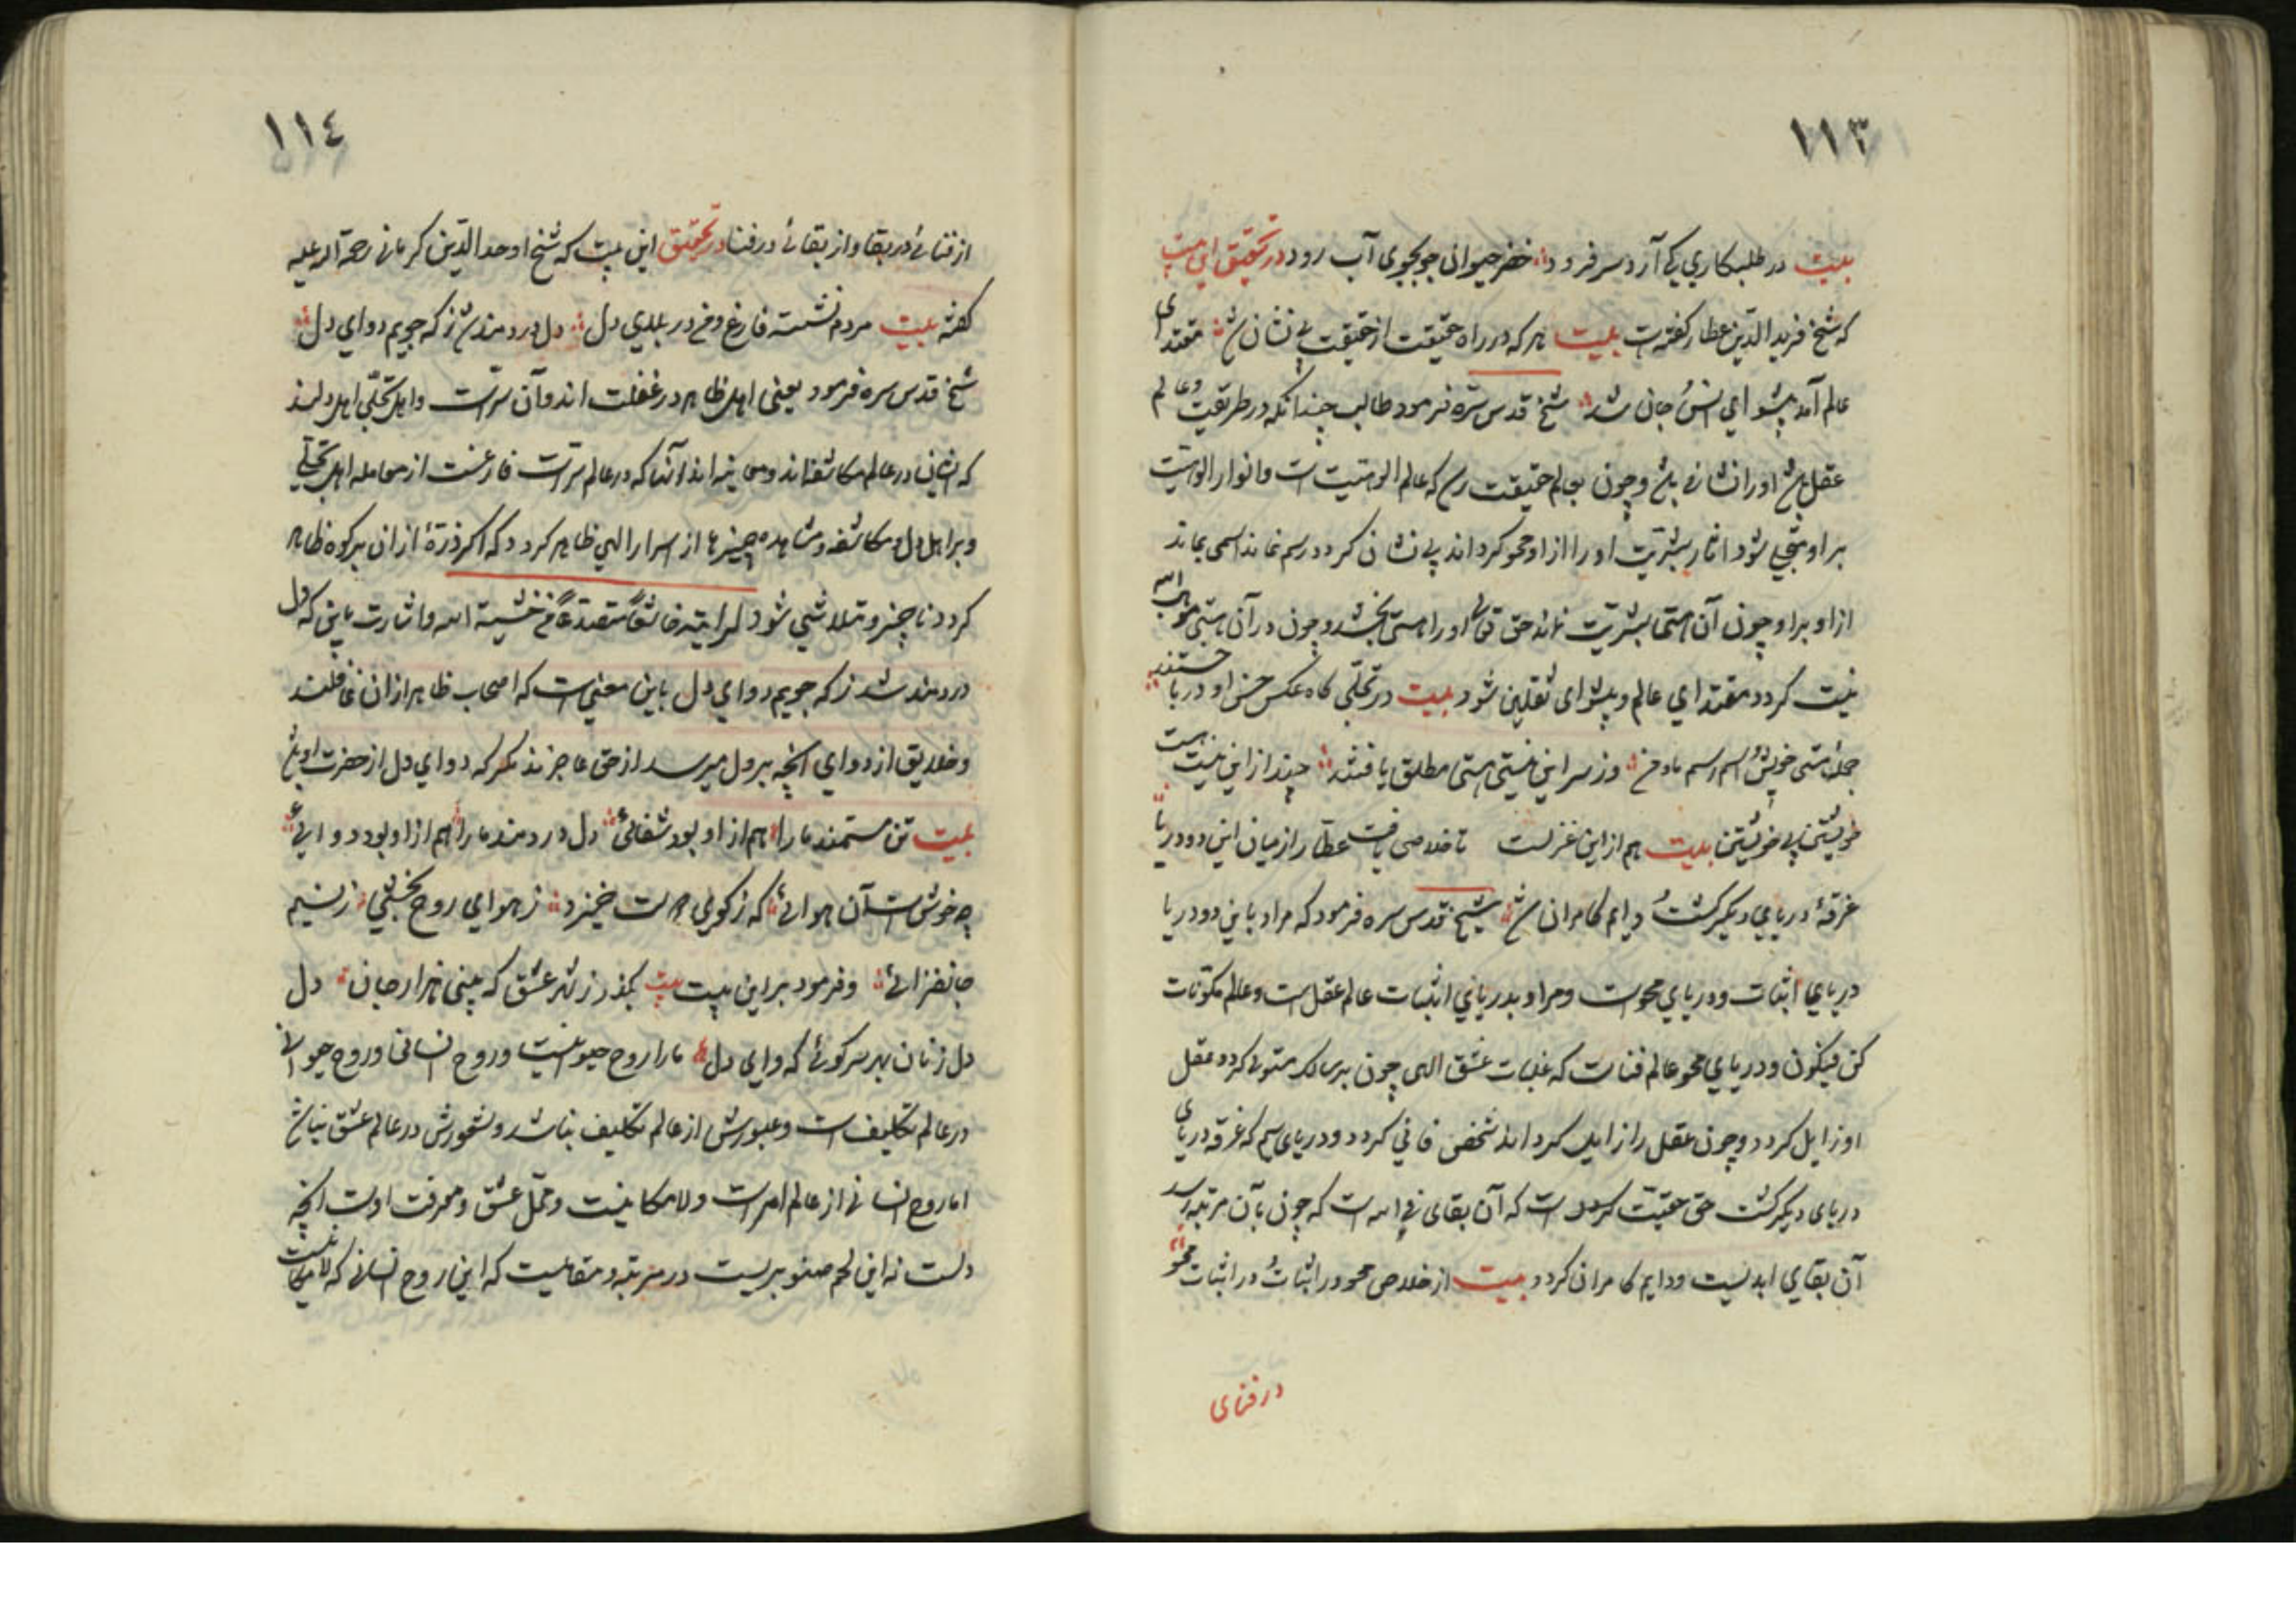 ١١٣
بیت در طلبکاری کی آرد سر فرود خضر حیوانی جو بجوی آب رود در تحقیق این بیت
که شیخ فرید الدین عطار کفته است بیت هر که در راه حقیقت از حقیقت بی نشان شد مقتدای
عالم آمد پیشوای انس و جان شد شیخ قدس سره فرمود طالب چندانکه در طریقت و عالم
عقل باشد او را نشانی باشد و چون بعالم حقیقت رسد که عالم الوهیت است و انوار الوهیت
بر او متجلی شود آثار بشریت او را از او محو کرداند بی نشان کردد رسم نماند اسمی بماند
از او بر او چون آن هستی بشریت نماند حق تعالی او را هستی بخشد و چون در آن هستی موهبت الله
نیست کردد مقتدای عالم و پیشوای ثقلین شود بیت در تجلی کاه عکس حسن او دریا جستند
جمله هستی خویش و اسم رسم ما و من وز سر این نیستی هستی مطلق یافتند چند از این نیست هست
خویشتن بی خویشتن بیت هم از این غزلست تا خلاصی یافت عطار از میان این دو دریا
غرقهٔ دریای دیکر کشت و دایم کامران شد شیخ قدس سره فرمود که مراد باین دو دریا
دریای اثبات و دریای محو است و مراد بدریای اثبات عالم عقل است و عالم مکونات
کن فیکون و دریای محو عالم فناست که غلبات عشق الهی چون بر سالک مستولی کردد عقل
او زایل کردد و چون عقل را زایل کرداند شخص فانی کردد و دریای سیم که غرقه دریای
دریای دیکر کشت حق حقیقت کردد است که آن بقای فی الله است که چون بآن مرتبه رسد
آن بقای ابدیست و دایم کامران کردد بیت از خلاص محو در اثبات و در اثبات محو
در فنای
١١٤
از فنائی در بقا و از بقائی در فنا در تحقیق این بیت که شیخ اوحد الدین کرمانی رحمة الله علیه
کفته بیت مردم نشسته فارغ و من در بلای دل دل دردمند شد ز که جویم دوای دل
شیخ قدس سره فرمود یعنی اهل ظاهر در غفلت اند و آن سرّست و اهل تجلی اهل دلند
که ایشان در عالم مکاشفه اند و معاینه اند و آنکه در عالم سرّست فارغست از معامله اهل تجلی
و بر اهل دل و مکاشفه و مشاهده چیزها از اسرار الهی ظاهر کردد که اکر ذرهٔ از آن بر کوه ظاهر
کردد ناچیز و متلاشی شود لرایته خاشعا متصدعا من خشیة الله و اشارت باین که دل
دردمند شد ز که جویم دوای دل باین معنی است که اصحاب ظاهر از آن غافلند
و خلایق از دوای انچه بر دل میرسد از حق عاجزند مکر که دوای دل از حضرت او باشد
بیت تن مستمند ما را هم از او بود شفائی دل دردمند ما را هم از او بود دوائی
چه خوش است آن هوائی که ز کوی دوست خیزد ز هوای روح بخشی ز نسیم
جانفزائی و فرمود بر این بیت بیت بگذر ز شهر عشق که بینی هزار جان دل
دل زنان بهر سر کوئی که وای دل ما را روح حیوانیست و روح انسانی و روح حیوانی
در عالم تکلیف است و عبورش از عالم تکلیف نباشد و شعورش در عالم عشق نباشد
اما روح انسانی از عالم امر است و لامکانیست و محل عشق و معرفت اوست انچه
دلست نه این لحم صنوبریست در مرتبه و مقامیست که این روح انسانی که لامکانیست